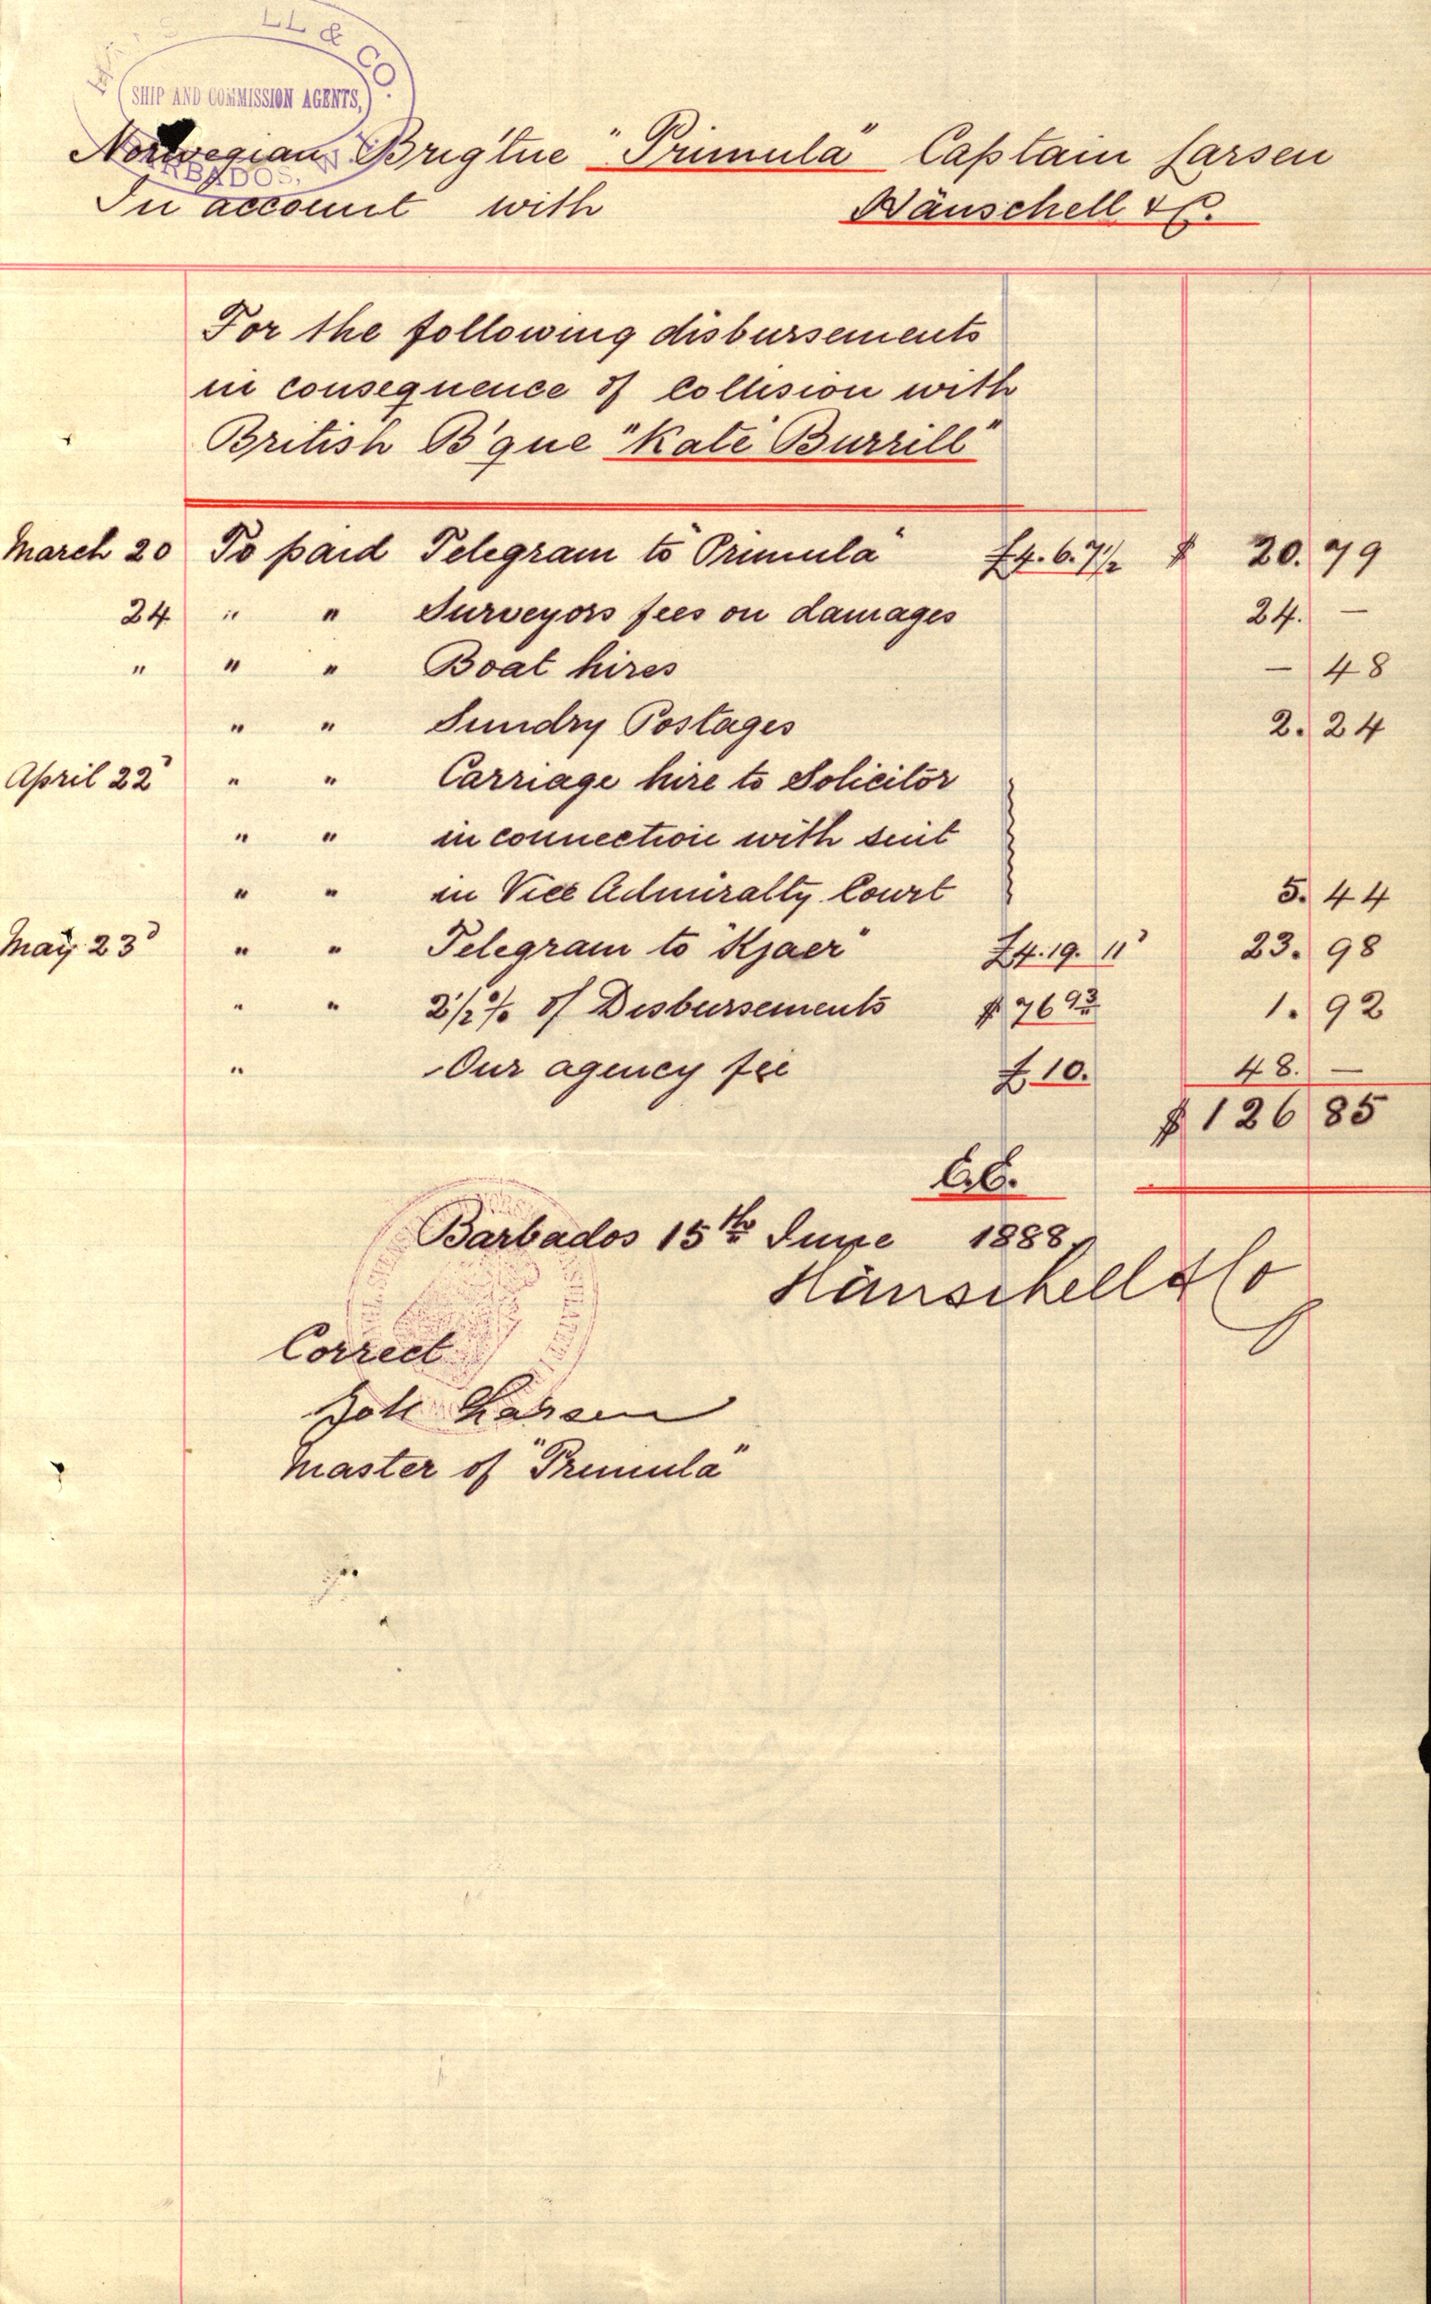 LL & CO.
SHIP AND COMMISSION AGENTS,
BARBADOS, W
Norwegian Brig'tne "Primula" Captain Larsen
In account with Hänschell & Co.
For the following disbursements
in consequence of Collision with
British B'que "Kate Burrill"
March 20 To paid Telegram to "Primula" £4. 6. 7 1/2 $ 20. 79
24 " " Surveyors fees on damages 24. —
" " " Boat hires — 48
" " Sundry Postages 2. 24
April 22 " " Carriage hire to Solicitor
" " in connection with suit
" " in Vice Admiralty Court 5. 44
May 23 " " Telegram to "Kjaer" £4. 19. 11 23. 98
" " 2 1/2 % of Disbursements $ 76 93 1. 92
" Our agency fee £ 10. 48. —
$ 126 85
E.E.
Barbados 15th June 1888.
Hänschell & Co
Correct
Joh Larsen
Master of "Primula"